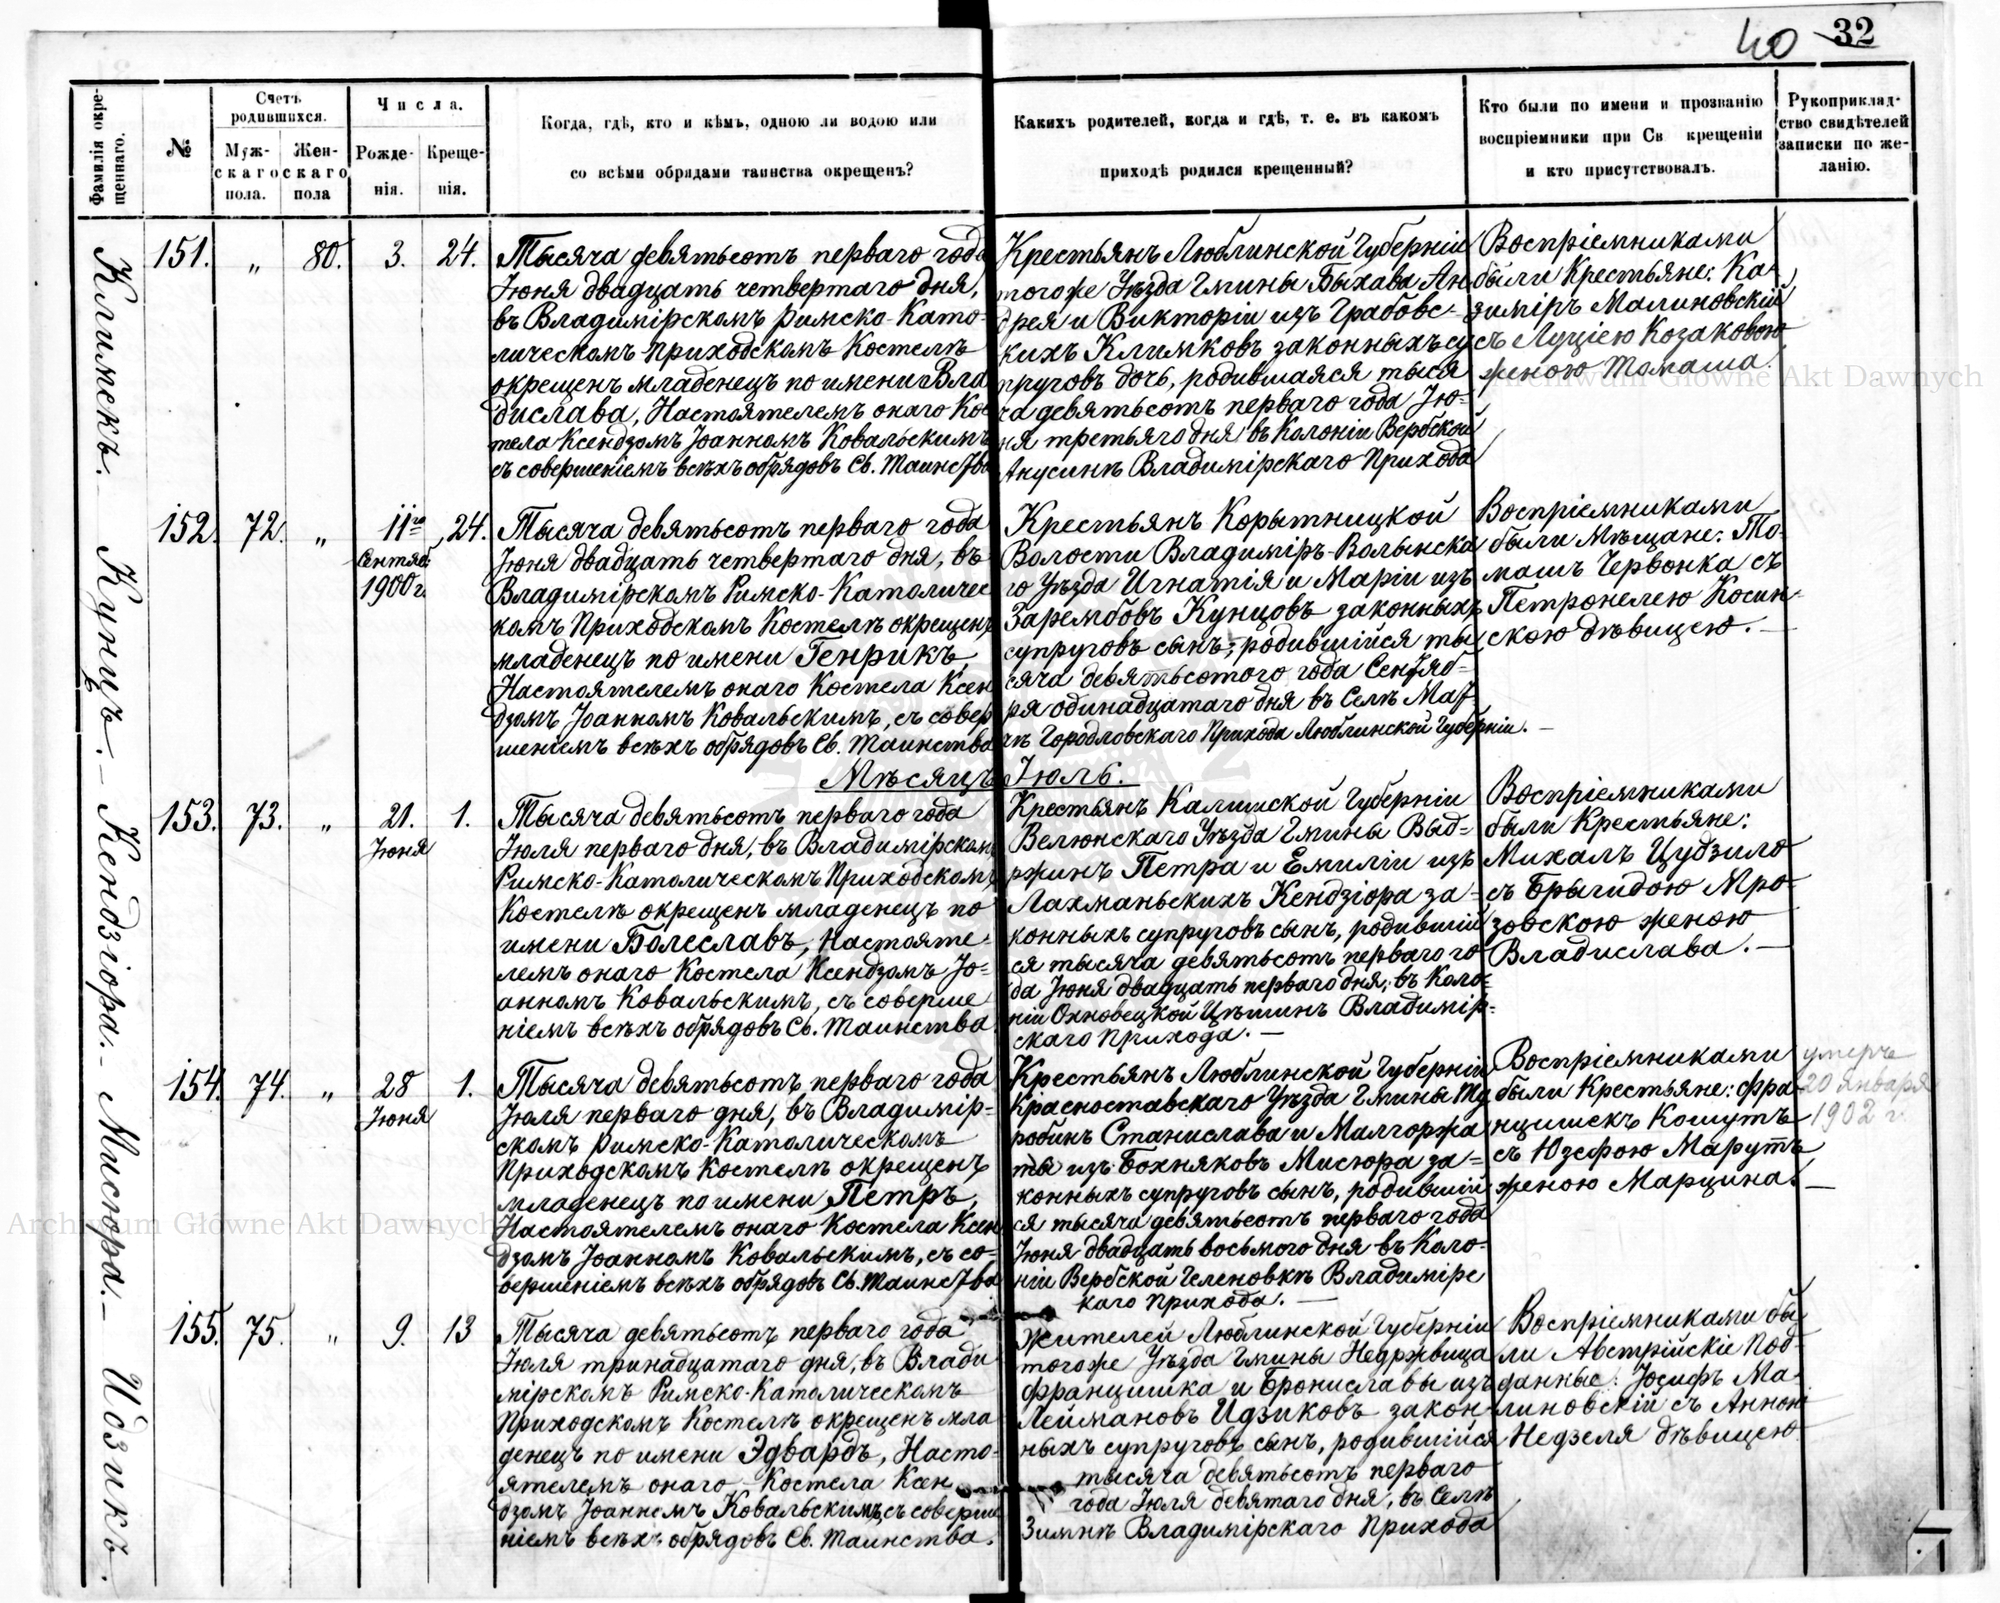 40 32
Фамилія окре-
щеннаго.
№
Счетъ
родившихся.
Муж-
скаго
пола.
Жен-
скаго
пола
Числа.
Рожде-
нія.
Креще-
нія.
Когда, гдѣ, кто и кѣмъ, одною ли водою или
со всѣми обрядами таинства окрещенъ?
Какихъ родителей, когда и гдѣ, т. е. въ какомъ
приходѣ родился крещенный?
Кто были по имени и прозванію
воспріемники при Св крещеніи
и кто присутствовалъ.
Рукоприклад-
ство свидѣтелей
записки по же-
ланію.
Климекъ.
151. „ 80. 3. 24.
Тысяча девятьсотъ перваго года
Іюня двадцать четвертаго дня,
въ Владимірскомъ Римско-Като-
лическомъ Приходскомъ Костелѣ
окрещенъ младенецъ по имени Вла
дислава, Настоятелемъ онаго Кос
тела Ксендзомъ Іоанномъ Ковальскимъ
съ совершеніемъ всѣхъ обрядовъ Св. Таинства
Крестьянъ Люблинской Губерніи
тогоже Уѣзда Гмины Быхава Ан
дрея и Викторіи изъ Грабовс-
кихъ Климковъ законныхъ су
пруговъ дочь, родившаяся тыся
ча девятьсотъ перваго года Ію-
ня третьяго дня въ Колоніи Вербской
Анусинѣ Владимірскаго Прихода
Воспріемниками
были Крестьяне: Ка-
зиміръ Малиновскій
съ Луціею Козаковою
женою Томаша.
Кунцъ.
152. 72. „ 11го 24.
Сентяб.
1900 г.
Тысяча девятьсотъ перваго года
Іюня двадцать четвертаго дня, въ
Владимірскомъ Римско-Католичес
комъ Приходскомъ Костелѣ окрещенъ
младенецъ по имени Генрикъ,
Настоятелемъ онаго Костела Ксен
дзомъ Іоанномъ Ковальскимъ, съ совер
шеніемъ всѣхъ обрядовъ Св. Таинства
Крестьянъ Корытницкой
Волости Владиміръ-Волынска
го Уѣзда Игнатія и Маріи изъ
Зарембовъ Кунцовъ законныхъ
супруговъ сынъ, родившійся ты
сяча девятьсотого года Сентяб-
ря одинадцатаго дня въ Селѣ Мат
чѣ Городловскаго Прихода Люблинской Губерніи.
Воспріемниками
были Мѣщане: То-
машъ Червонка съ
Петронелею Косин-
скою дѣвицею.
Мѣсяцъ Іюль.
Кендзіора.
153. 73. „ 21. 1.
Іюня
Тысяча девятьсотъ перваго года
Іюля перваго дня, въ Владимірскомъ
Римско-Католическомъ Приходскомъ
Костелѣ окрещенъ младенецъ по
имени Болеславъ, Настояте-
лемъ онаго Костела Ксендзомъ Іо-
анномъ Ковальскимъ, съ соверше
ніемъ всѣхъ обрядовъ Св. Таинства
Крестьянъ Калишской Губерніи
Велюнскаго Уѣзда Гмины Выд-
ржинъ Петра и Емиліи изъ
Лахманьскихъ Кендзіора за-
конныхъ супруговъ сынъ, родившій
ся тысяча девятьсотъ перваго го
да Іюня двадцать перваго дня, въ Коло-
ніи Охновецкой Цѣшинъ Владимір-
скаго Прихода.
Воспріемниками
были Крестьяне:
Михалъ Цудзило
съ Брыгидою Мро-
зовскою женою
Владислава.
Мисюра.
154. 74. „ 28 1.
Іюня
Тысяча девятьсотъ перваго года
Іюля перваго дня, въ Владимір-
скомъ Римско-Католическомъ
Приходскомъ Костелѣ окрещенъ
младенецъ по имени Петръ,
Настоятелемъ онаго Костела Ксен
дзомъ Іоанномъ Ковальскимъ, съ со-
вершеніемъ всѣхъ обрядовъ Св. Таинства
Крестьянъ Люблинской Губерніи
Красноставскаго Уѣзда Гмины Ту
робинъ Станислава и Малгоржа
ты изъ Бохняковъ Мисюра за-
конныхъ супруговъ сынъ, родившій
ся тысяча девятьсотъ перваго года
Іюня двадцать восьмого дня въ Коло-
ніи Вербской Геленовкѣ Владимірс
каго Прихода.
Воспріемниками
были Крестьяне: Фра
нцишекъ Кошутъ
съ Юзефою Марутъ
женою Марцина.
умерч
20 января
1902 г.
Идзикъ.
155. 75. „ 9. 13
Тысяча девятьсотъ перваго года
Іюля тринадцатаго дня, въ Влади
мірскомъ Римско-Католическомъ
Приходскомъ Костелѣ окрещенъ мла
денецъ по имени Эдвардъ, Насто-
ятелемъ онаго Костела Ксен
дзомъ Іоанномъ Ковальскимъ, съ соверше
ніемъ всѣхъ обрядовъ Св. Таинства.
Жителей Люблинской Губерніи
тогоже Уѣзда Гмины Недржвица
Францишка и Брониславы изъ
Леймановъ Идзиковъ закон-
ныхъ супруговъ сынъ, родившійся
тысяча девятьсотъ перваго
года Іюля девятаго дня, въ Селѣ
Зимнѣ Владимірскаго Прихода
Воспріемниками бы
ли Австрійскіе Под-
данные: Іосифъ Ма-
линовскій съ Анною
Недзеля дѣвицею
Archiwum Główne Akt Dawnych
Archiwum Główne Akt Dawnych